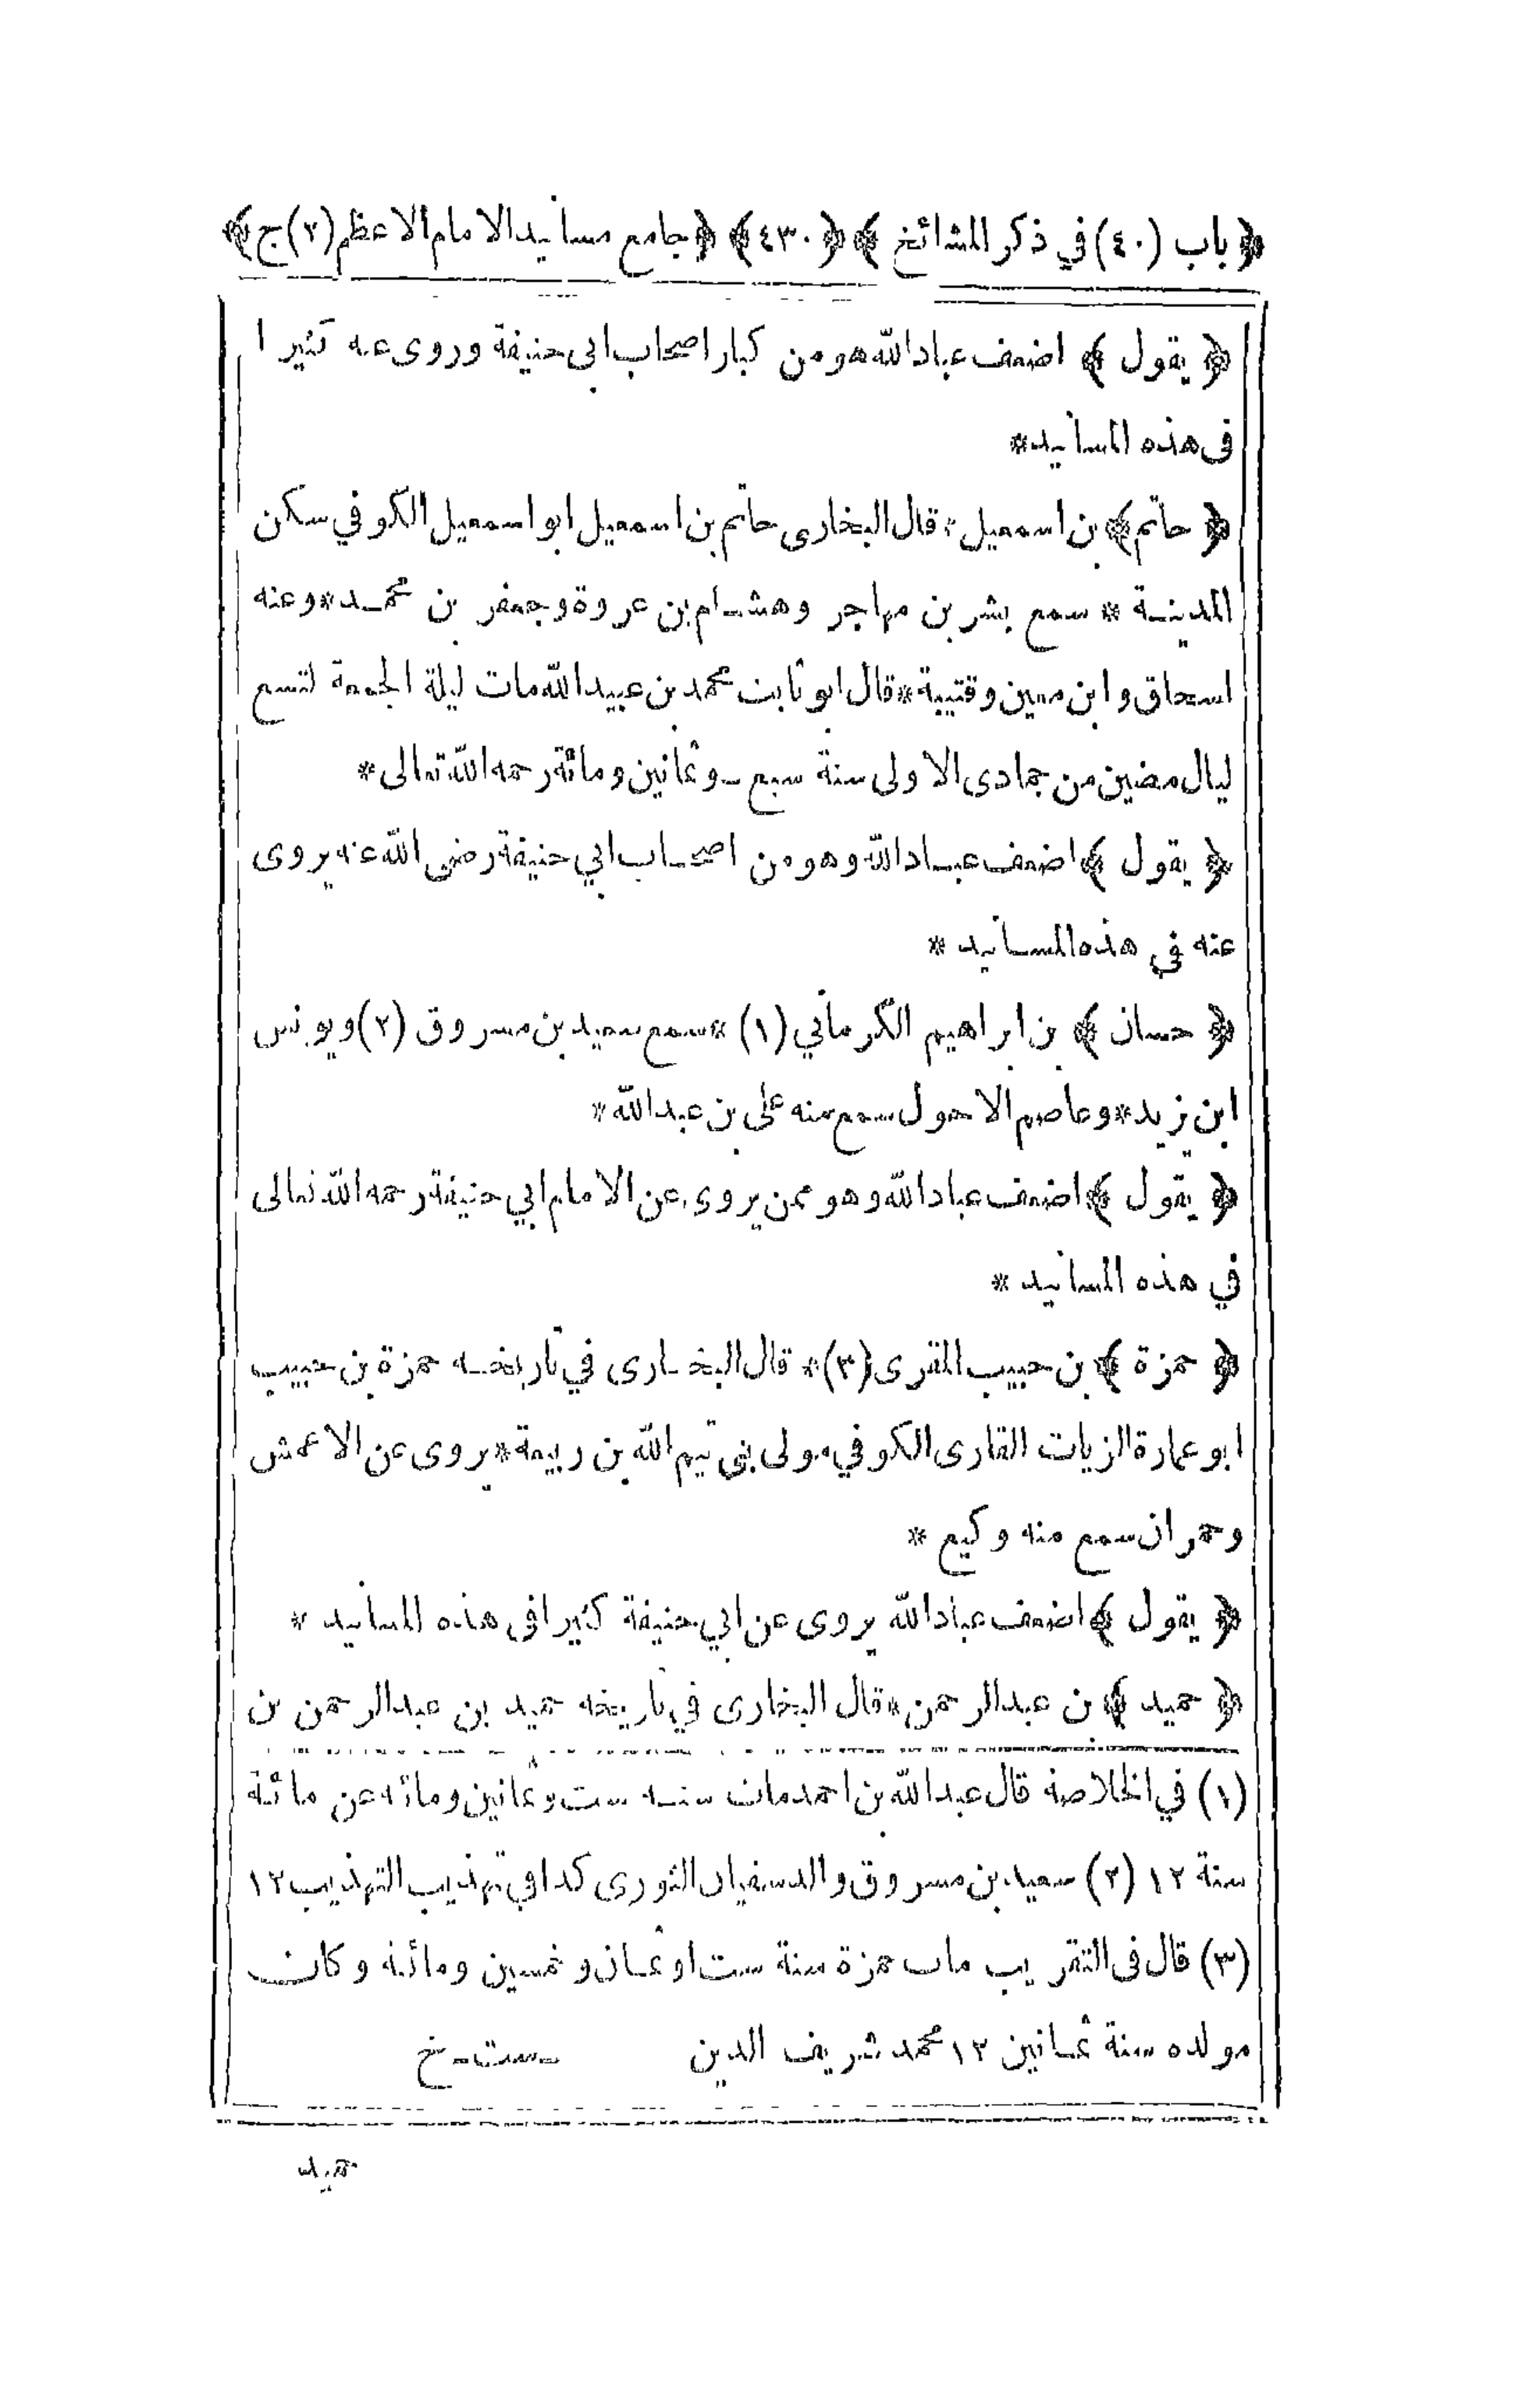 ﴿ باب (٤٠) في ذكر المشائخ ﴾ ﴿ ٤٣٠ ﴾ ﴿ جامع مسانيد الامام الاعظم (٢) ج ﴾
﴿ يقول ﴾ اضعف عباد الله هو من كبار اصحاب ابى حنيفة وروى عنه كثيرا
فى هذه المسانيد *
﴿ حاتم ﴾ بن اسمعيل * قال البخارى حاتم بن اسمعيل ابو اسمعيل الكوفي سكن
المدينة * سمع بشر بن مهاجر وهشام بن عروة وجعفر بن محمد * وعنه
اسحاق وابن معين وقتيبة * قال ابو ثابت محمد بن عبيد الله مات ليلة الجمعة لتسع
ليال مضين من جمادى الاولى سنة سبع وثمانين ومائة رحمه الله تعالى *
﴿ يقول ﴾ اضعف عباد الله وهو من اصحاب ابي حنيفة رضى الله عنه يروى
عنه في هذه المسانيد *
﴿ حسان ﴾ بن ابراهيم الكرماني (١) * سمع سعيد بن مسروق (٢) ويونس
ابن يزيد * وعاصم الاحول سمع منه على بن عبد الله *
﴿ يقول ﴾ اضعف عباد الله وهو ممن يروى عن الامام ابي حنيفة رحمه الله تعالى
في هذه المسانيد *
﴿ حمزة ﴾ بن حبيب المقرى (٣) * قال البخارى في تاريخه حمزة بن حبيب
ابو عمارة الزيات القارى الكوفي مولى بنى تيم الله بن ربيعة * يروى عن الاعمش
وحمران سمع منه وكيع *
﴿ يقول ﴾ اضعف عباد الله يروى عن ابي حنيفة كثيرا فى هذه المسانيد *
﴿ حميد ﴾ بن عبد الرحمن * قال البخارى في تاريخه حميد بن عبد الرحمن بن
(١) في الخلاصة قال عبد الله بن احمد مات سنة ست وثمانين ومائه عن مائة
سنة ١٢ (٢) سعيد بن مسروق والد سفيان الثورى كذا في تهذيب التهذيب ١٢
(٣) قال فى التقريب مات حمزة سنة ست او ثمان وخمسين ومائة وكان
مولده سنة ثمانين ١٢ محمد شريف الدين
حميد